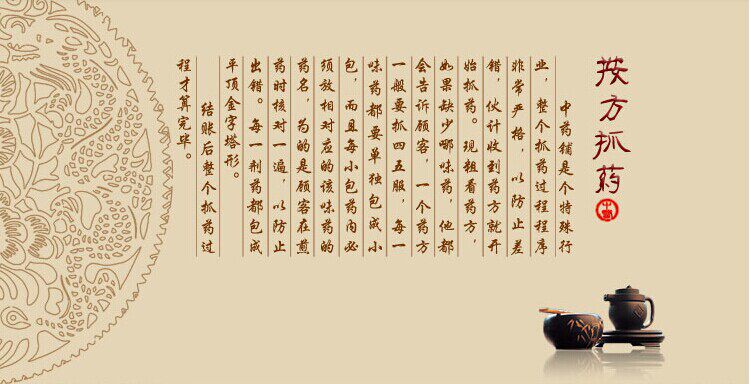 按方抓药
中药铺是个特殊行
业，整个抓药过程程序
非常严格，以防止差
错，伙计收到药方就开
始抓药。现粗看药方，
如果缺少哪味药，他都
会告诉顾客，一个药方
一般要抓四五服，每一
味药都要单独包成小
包，而且每小包药内必
须放相对应的该味药的
药名，为的是顾客在煎
药时核对一遍，以防止
出错。每一剂药都包成
平顶金字塔形。
结账后整个抓药过
程才算完毕。